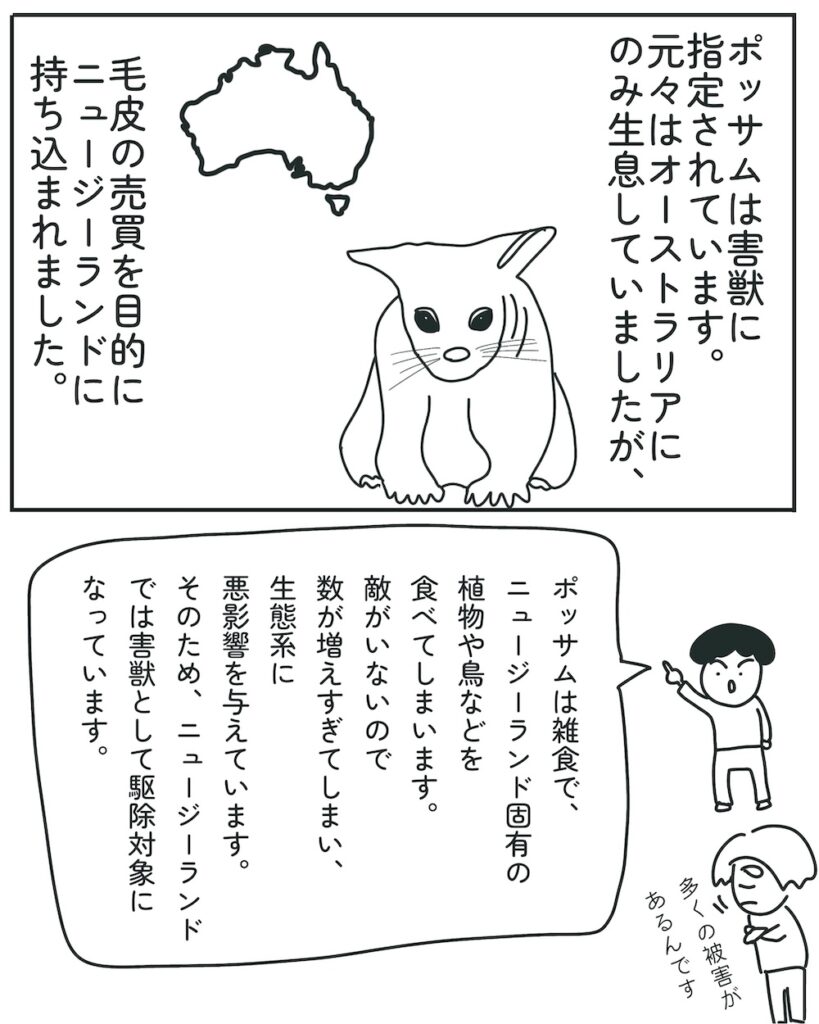 ポッサムは害獣に
指定されています。
元々はオーストラリアに
のみ生息していましたが、
毛皮の売買を目的に
ニュージーランドに
持ち込まれました。
ポッサムは雑食で、
ニュージーランド固有の
植物や鳥などを
食べてしまいます。
敵がいないので
数が増えすぎてしまい、
生態系に
悪影響を与えています。
そのため、ニュージーランド
では害獣として駆除対象に
なっています。
多くの被害が
あるんです